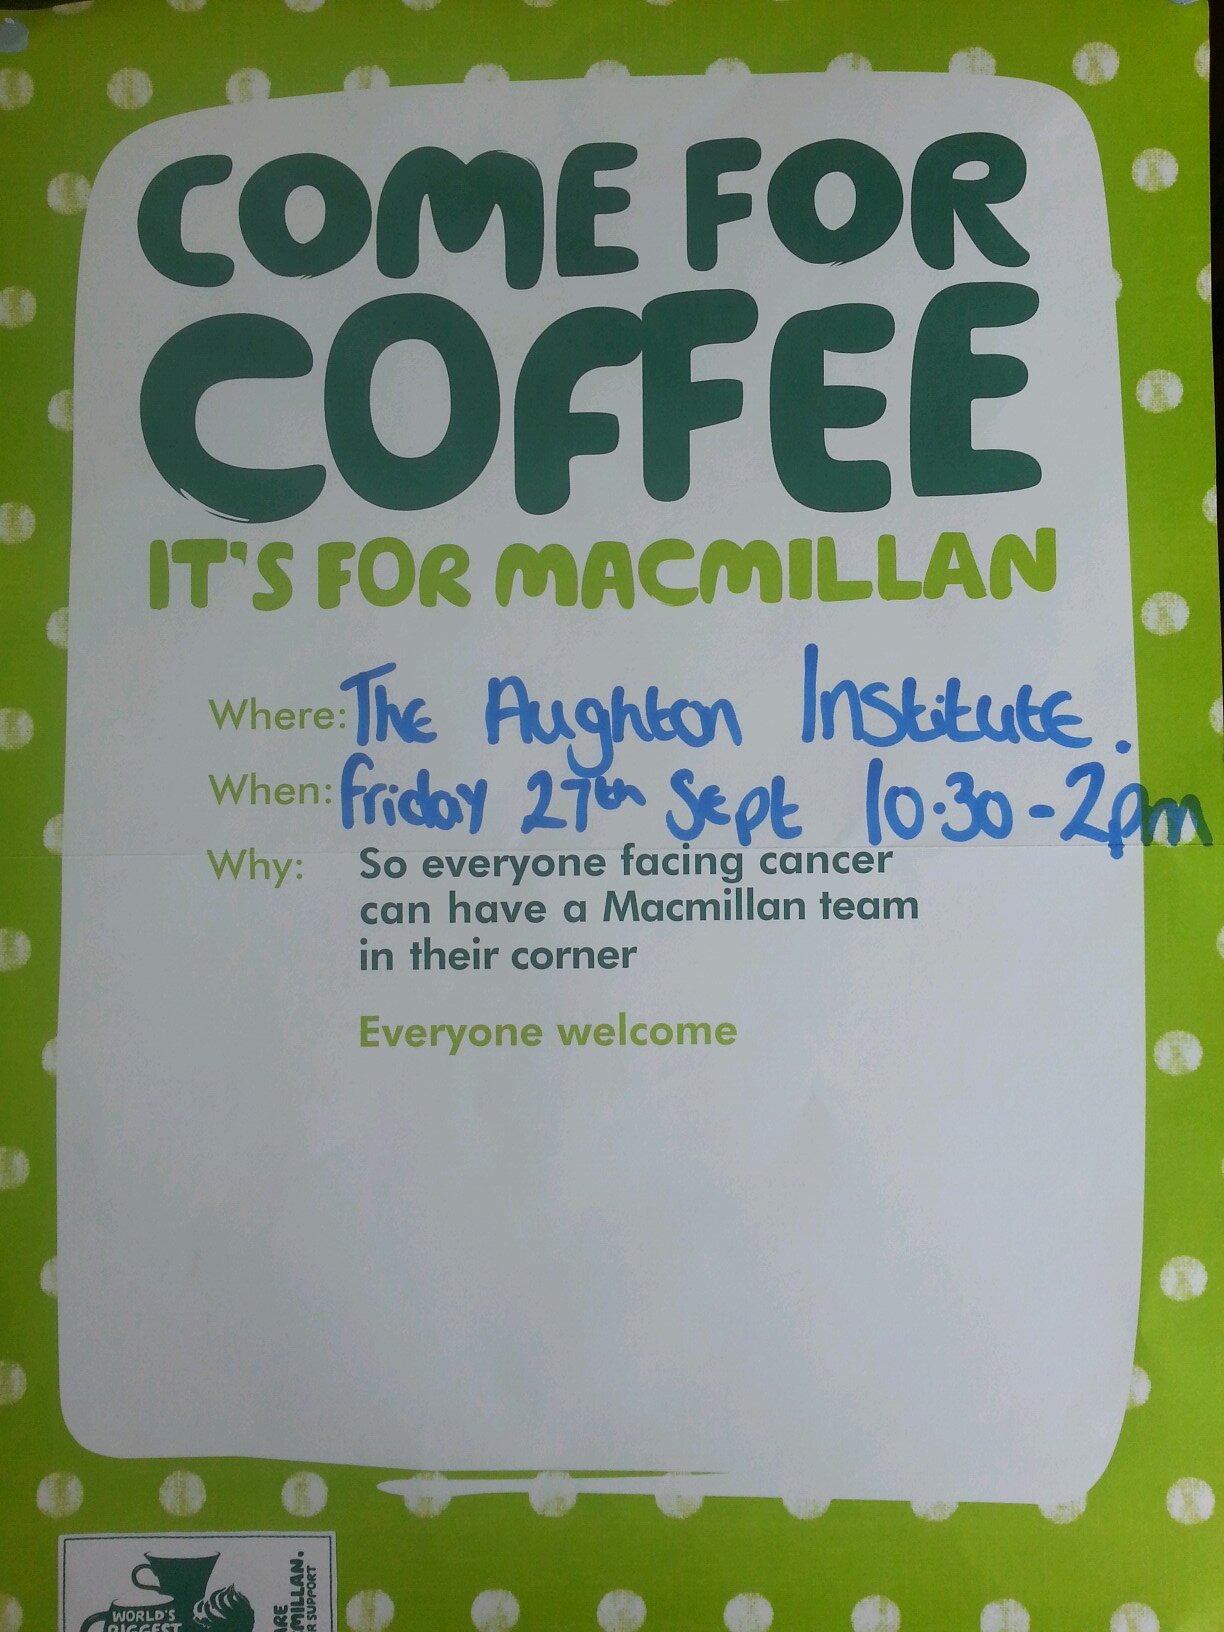 COME FOR
COFFEE
IT'S FOR MACMILLAN
Where: The Aughton Institute.
When: Friday 27th Sept 10.30-2pm
Why: So everyone facing cancer
can have a Macmillan team
in their corner
Everyone welcome
WORLD'S
BIGGEST